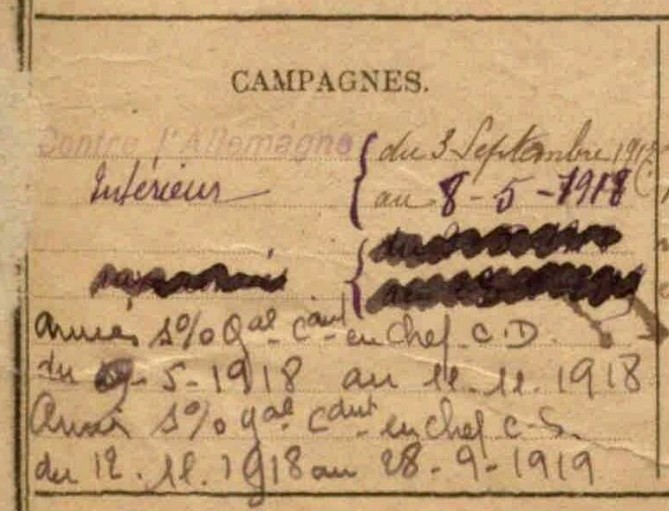 CAMPAGNES.
Contre l'Allemagne { du 3 Septembre
Intérieur { au 8-5-1918
Armées s% Gal Cdant en Chef C.D.
du 9-5-1918 au 11.11.1918
Armées s% Gal Cdant en Chef C.S.
du 12.11.1918 au 28-9-1919